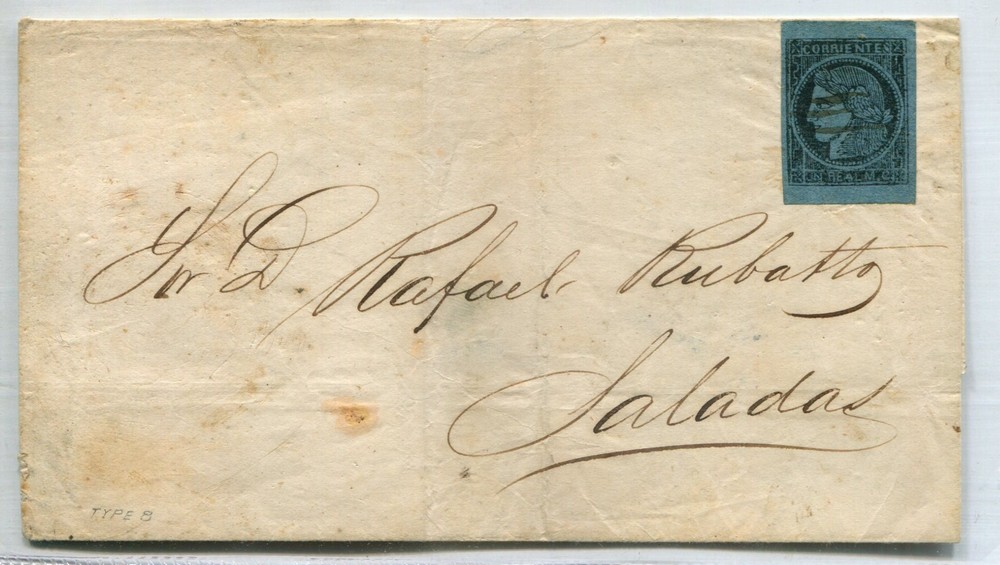 CORRIENTES
UN REAL M.C.
Sor D. Rafael Rubatto
Saladas
TYPE 8